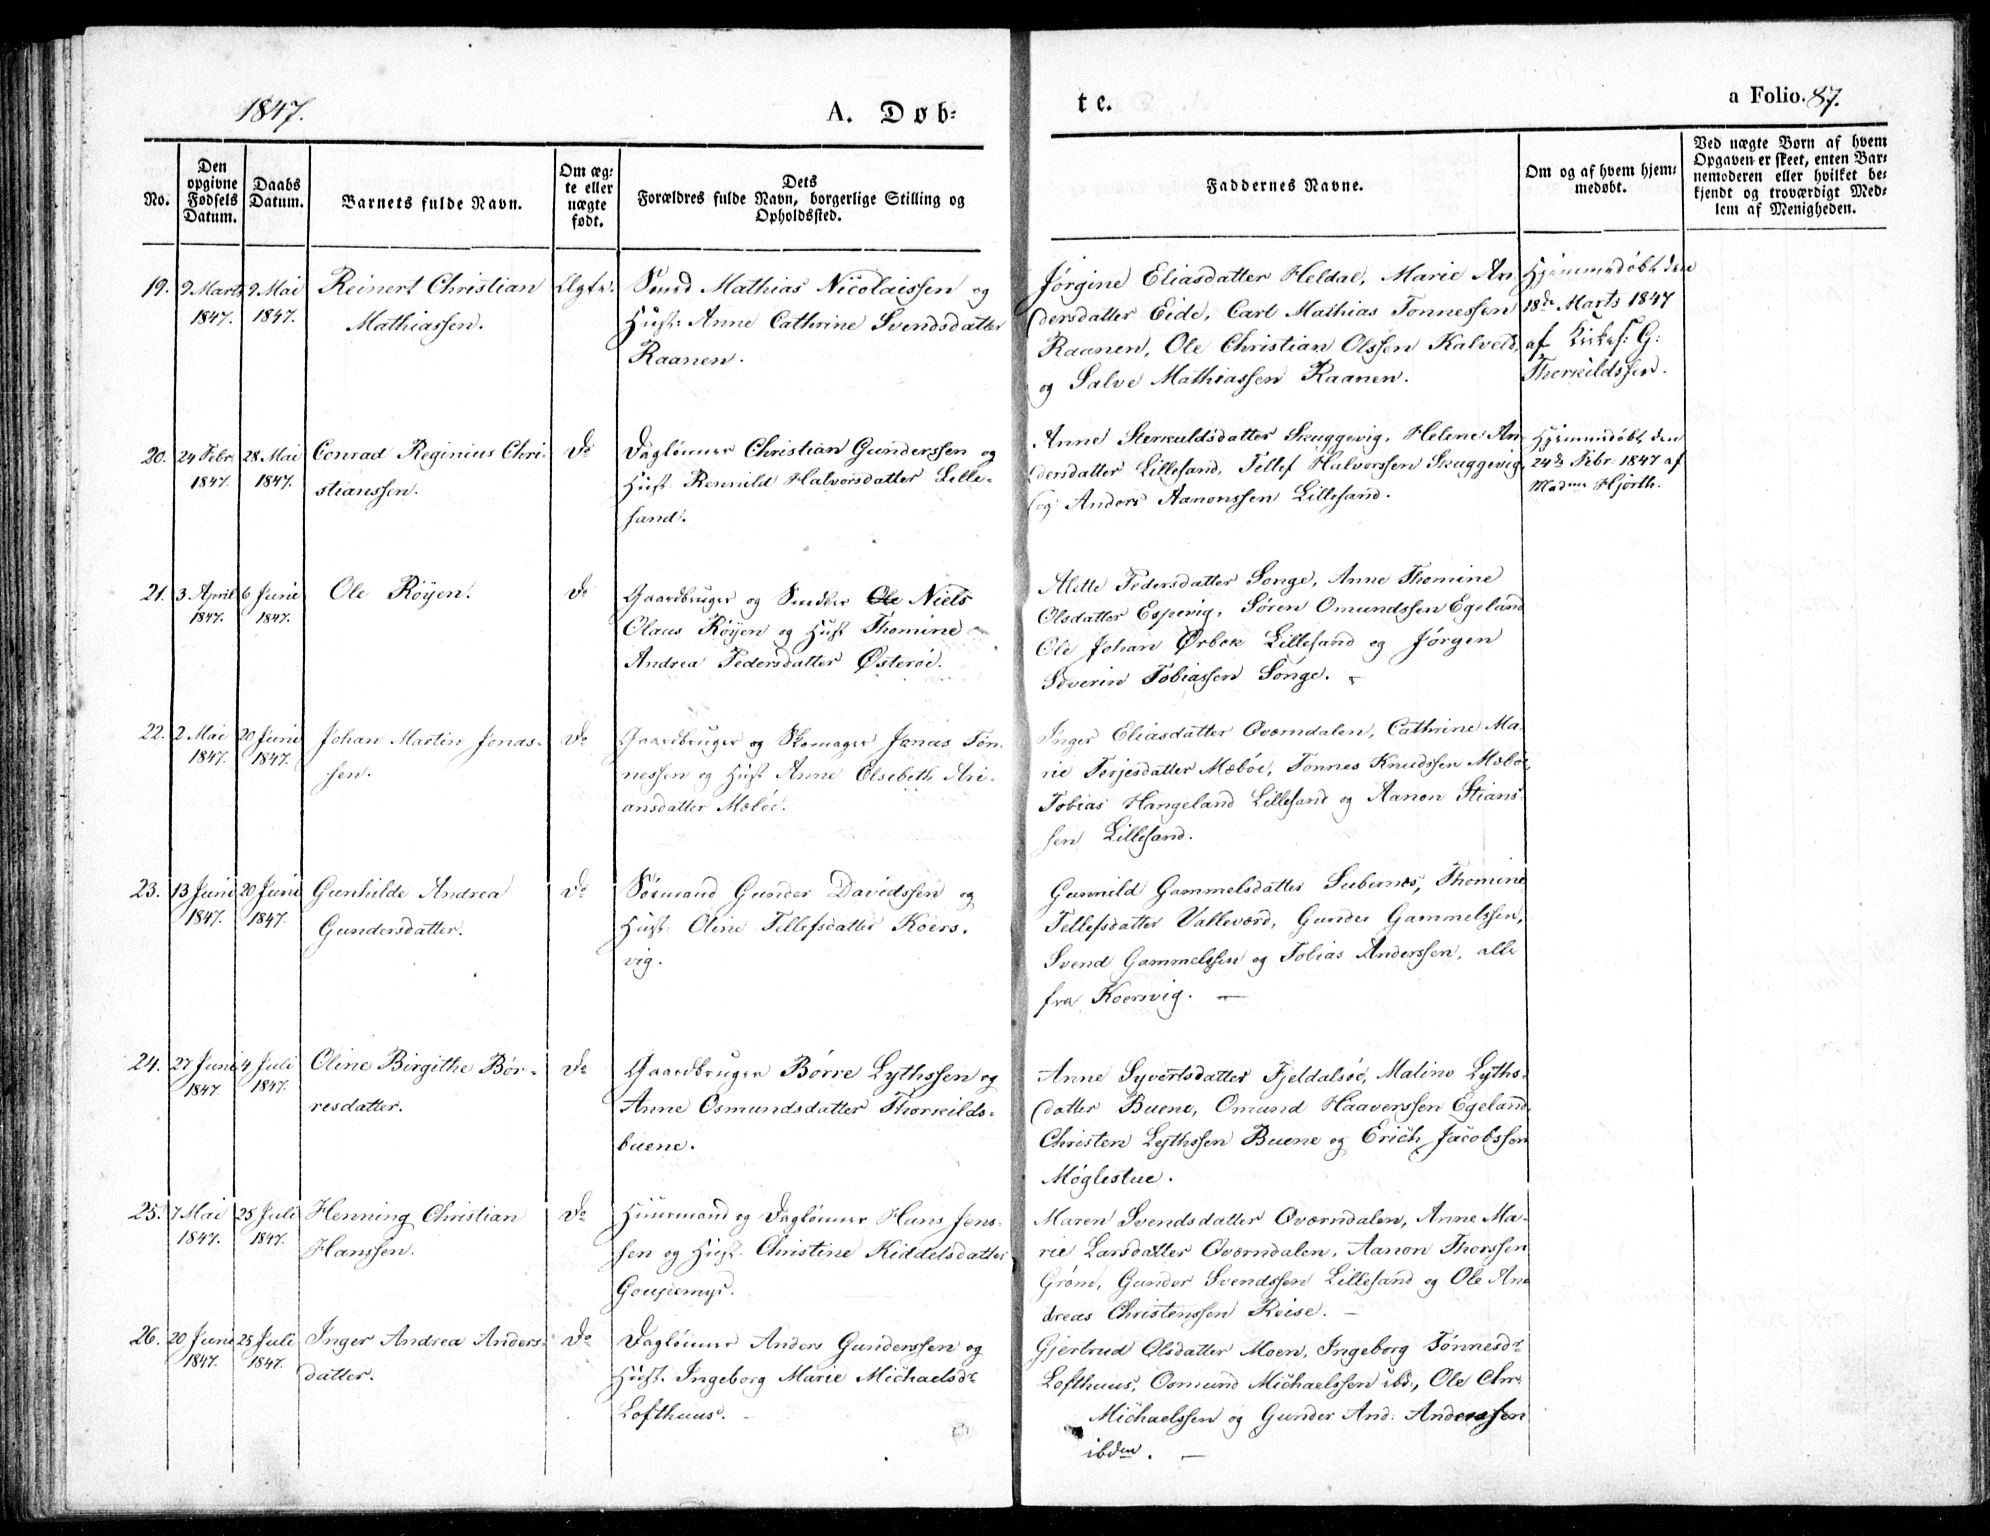 1847.
A. Døb-
te.
a Folio. 87.
No.
Den opgivne Fødsels Datum.
Daabs Datum.
Barnets fulde Navn.
Om ægte eller uægte født.
Dets Forældres fulde Navn, borgerlige Stilling og Opholdssted.
Faddernes Navne.
Om og af hvem hjemmedøbt.
Ved uægte Børn af hvem Opgaven er skeet, enten Barnemoderen eller hvilket bekjendt og troværdigt Medlem af Menigheden.
19. 9 Marts 1847. 9 Mai 1847.
Reinert Christian
Mathiassen.
Ægte.
Smed Mathias Nicolaissen og
Hust: Anne Cathrine Svendsdatter
Raanen.
Jørgine Eliasdatter Heldal, Marie An-
dersdatter Eide, Carl Mathias Tønnessen
Raanen, Ole Christian Olssen Kalveld,
og Salve Mathiassen Raanen.
Hjemmedøbt den
18de Marts 1847
af Kirkes: G:
Therkildssen.
20. 24 Febr. 1847. 28 Mai 1847.
Conrad Reginius Chri-
stianssen.
Do
Daglønner Christian Gunderssen og
Hust Rennild Halvorsdatter Lille-
sand.
Anne Terkuldsdatter Skuggevig, Helene An-
dersdatter Lillesand, Tellef Halvorssen Skuggevig
og Anders Aanonssen Lillesand.
Hjemmedøbt den
24de Febr. 1847 af
Madme Hjorth.
21. 3 April 1847. 6 Juni 1847.
Ole Röÿen.
Do
Gaardbruger og Snedker Ole Niels
Olaus Röÿen og Hust Thomine
Andrea Pedersdatter Østeröe.
Alette Pedersdatter Songe, Anne Thomine
Olsdatter Espevig, Søren Omundssen Egeland
Ole Johan Ørbek Lillesand og Jørgen
Severin Tobiassen Songe.
22. 2 Mai 1847. 20 Juni 1847.
Johan Martin Jonas-
sen.
Do
Gaardbruger og Skomager Jonas Tøn-
nessen og Hust Anne Elsebeth Ari-
ansdatter Mæböe.
Inger Eliasdatter Oværndalen, Cathrine Ma-
rie Terjesdatter Mæböe, Tønnes Knudssen Mæböe,
Tobias Hangeland Lillesand og Aanon Stians-
sen Lillesand.
23. 13 Juni 1847. 20 Juni 1847.
Gunhilde Andrea
Gundersdatter.
Do
Sømand Gunder Davidssen og
Hust: Oline Tellefsdatter Koers-
vig.
Gunnild Gammelsdatter Subernæs, Thomine
Tellefsdatter Valleværd, Gunder Gammelssen,
Svend Gammelssen og Tobias Anderssen, alle
fra Koersvig.
24. 27 Juni 1847. 4 Juli 1847.
Oline Birgithe Bör-
resdatter.
Do
Gaardbruger Börre Lythssen og
Anne Osmundsdatter Thorkilds-
buene.
Anne Syvertsdatter Fjeldalsöe, Maline Lyths-
datter Buene, Omund Haaverssen Egeland,
Christen Lythssen Buene og Erich Jacobssen
Møglestue.
25. 7 Mai 1847. 25 Juli 1847.
Henning Christian
Hanssen.
Do
Huusmand og Daglønner Hans Jens-
sen og Hust. Christine Kiddelsdatter
Goupemyr.
Maren Svendsdatter Oværndalen, Anne Ma-
rie Larsdatter Oværndalen, Aanon Thorssen
Grøm, Gunder Svendssen Lillesand og Ole An-
dreas Christenssen Reise.
26. 20 Juni 1847. 25 Juli 1847.
Inger Andrea Anders-
datter.
Do
Daglønner Anders Gunderssen og
Hust. Ingeborg Marie Michaelsdr
Lofthuus.
Gjertrud Olsdatter Moen, Ingeborg Tønnesdr
Lofthuus, Osmund Michaelssen ibd., Ole Chr:
Michaelssen og Gunder And: Anderssen
ibdm.